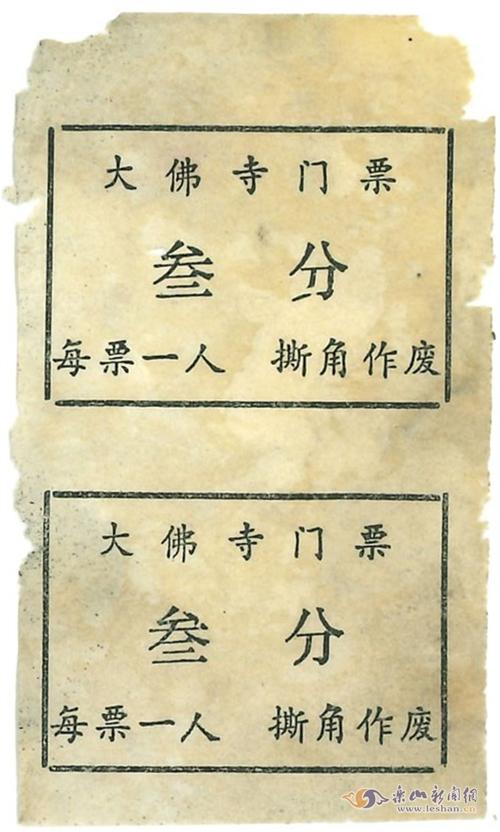 大佛寺门票
叁分
每票一人 撕角作废
大佛寺门票
叁分
每票一人 撕角作废
乐山新闻网
www.leshan.cn